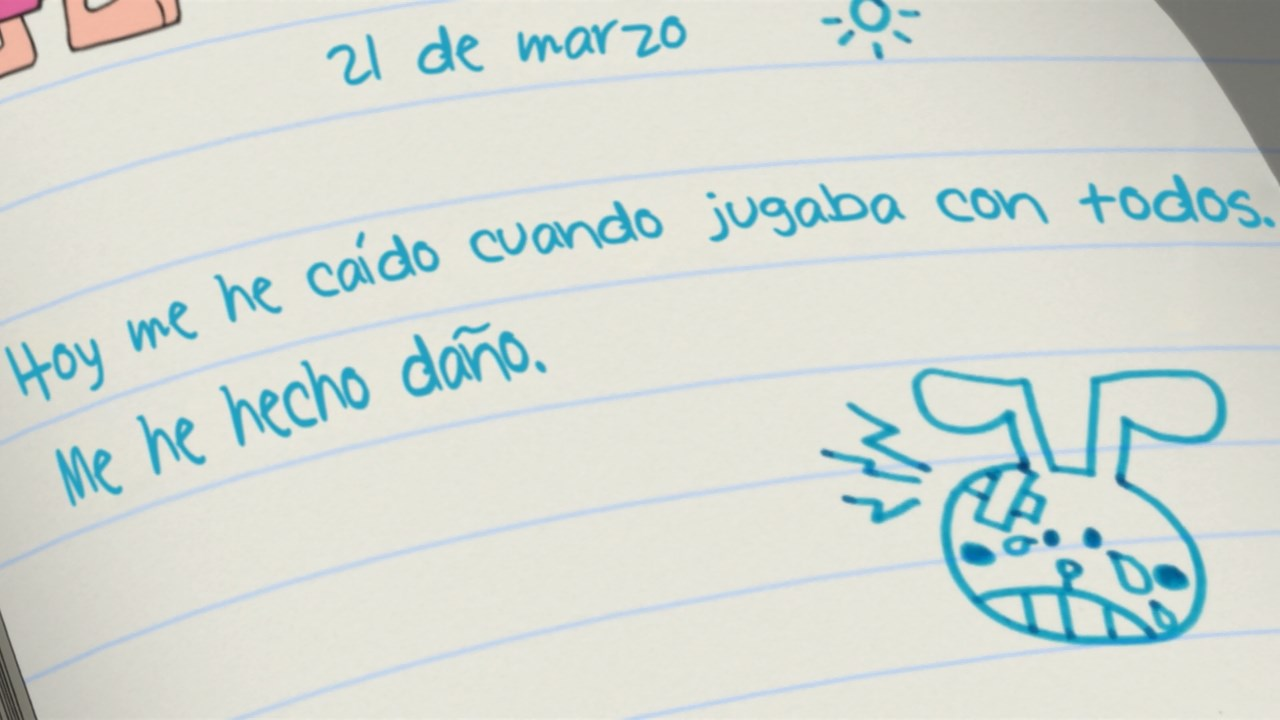 21 de marzo
Hoy me he caído cuando jugaba con todos.
Me he hecho daño.